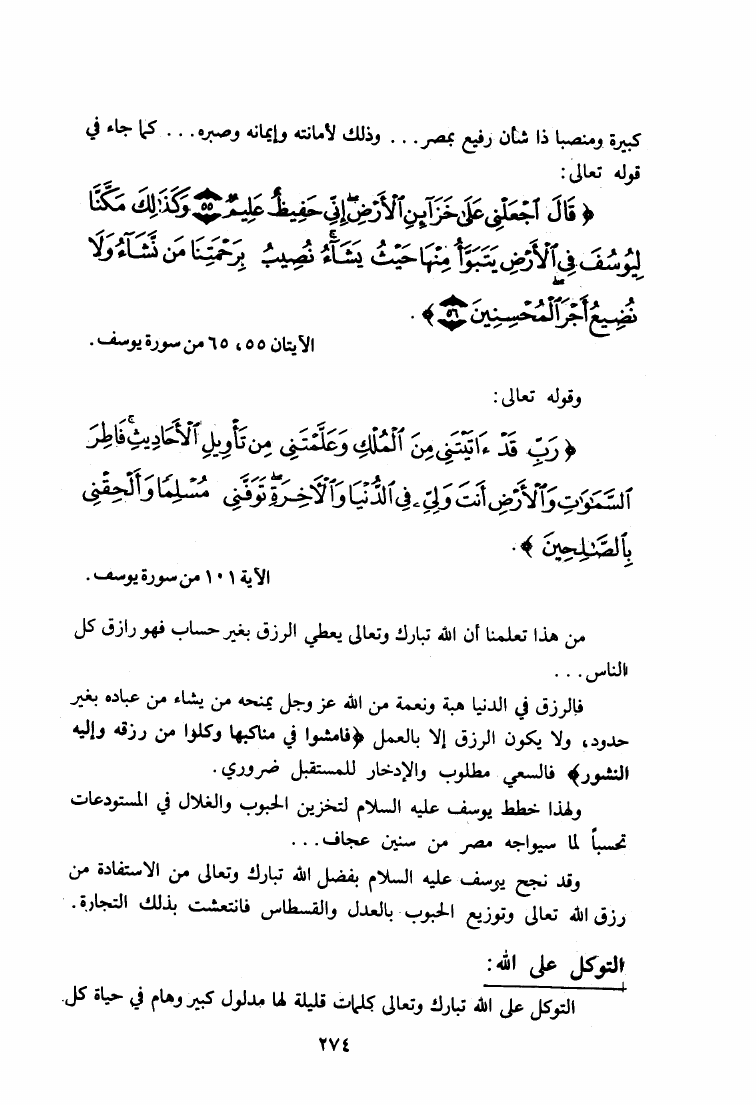 كبيرة ومنصبا ذا شأن رفيع بمصر... وذلك لأمانته وإيمانه وصبره... كما جاء في
قوله تعالى:
﴿ قَالَ ٱجْعَلْنِى عَلَىٰ خَزَآئِنِ ٱلْأَرْضِ ۖ إِنِّى حَفِيظٌ عَلِيمٌ ٥٥ وَكَذَٰلِكَ مَكَّنَّا
لِيُوسُفَ فِى ٱلْأَرْضِ يَتَبَوَّأُ مِنْهَا حَيْثُ يَشَآءُ ۚ نُصِيبُ بِرَحْمَتِنَا مَن نَّشَآءُ ۖ وَلَا
نُضِيعُ أَجْرَ ٱلْمُحْسِنِينَ ٥٦ ﴾.
الآيتان ٥٥، ٦٥ من سورة يوسف.
وقوله تعالى:
﴿ رَبِّ قَدْ ءَاتَيْتَنِى مِنَ ٱلْمُلْكِ وَعَلَّمْتَنِى مِن تَأْوِيلِ ٱلْأَحَادِيثِ ۚ فَاطِرَ
ٱلسَّمَٰوَٰتِ وَٱلْأَرْضِ أَنتَ وَلِىِّۦ فِى ٱلدُّنْيَا وَٱلْآخِرَةِ ۖ تَوَفَّنِى مُسْلِمًا وَأَلْحِقْنِى
بِٱلصَّٰلِحِينَ ﴾.
الآية ١٠١ من سورة يوسف.
من هذا تعلمنا أن الله تبارك وتعالى يعطي الرزق بغير حساب فهو رازق كل
الناس...
فالرزق في الدنيا هبة ونعمة من الله عز وجل يمنحه من يشاء من عباده بغير
حدود، ولا يكون الرزق إلا بالعمل ﴿فامشوا في مناكبها وكلوا من رزقه وإليه
النشور﴾ فالسعي مطلوب والإدخار للمستقبل ضروري.
ولهذا خطط يوسف عليه السلام لتخزين الحبوب والغلال في المستودعات
تحسباً لما سيواجه مصر من سنين عجاف...
وقد نجح يوسف عليه السلام بفضل الله تبارك وتعالى من الاستفادة من
رزق الله تعالى وتوزيع الحبوب بالعدل والقسطاس فانتعشت بذلك التجارة.
التوكل على الله:
التوكل على الله تبارك وتعالى كلمات قليلة لها مدلول كبير وهام في حياة كل
٢٧٤